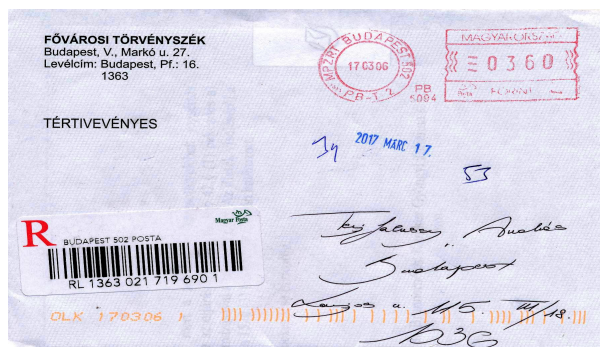 FŐVÁROSI TÖRVÉNYSZÉK
Budapest, V., Markó u. 27.
Levélcím: Budapest, Pf.: 16.
1363
TÉRTIVEVÉNYES
MPZRT BUDAPEST 502
17 03 06
PB-1 2
PB
5084
MAGYARORSZÁG
0360
FORINT
2017 MÁRC 17.
53
R
Magyar Posta
BUDAPEST 502 POSTA
RL 1363 021 719 690 1
András
Budapest
Lajos u. 115. III/18.
1036
OLK 170306 1